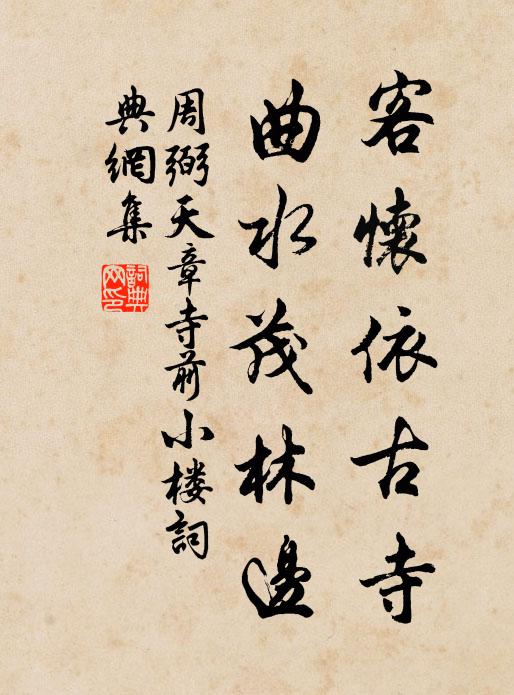 客懷依古寺
曲水茂林邊
周弼天章寺前小楼詞
典網集
詞典網印